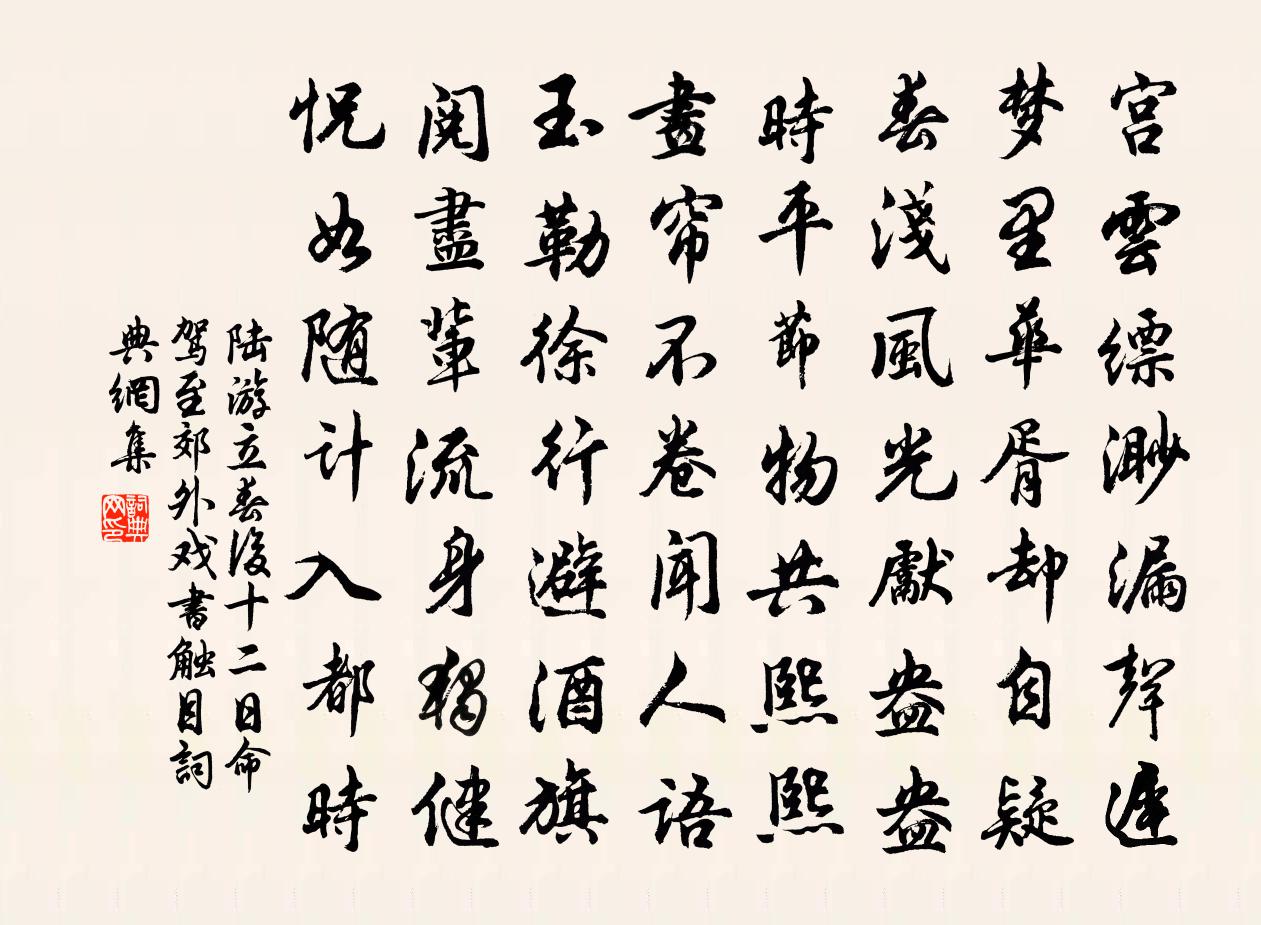 宮雲縹渺漏聲遲
梦里華胥却自疑
春淺風光獻盎盎
時平節物共熙熙
畫帘不卷聞人語
玉勒徐行避酒旗
閱盡輩流身獨健
怳如随计入都時
陆游立春後十二日命
駕至郊外戏書触目詞
典網集
詞典网印